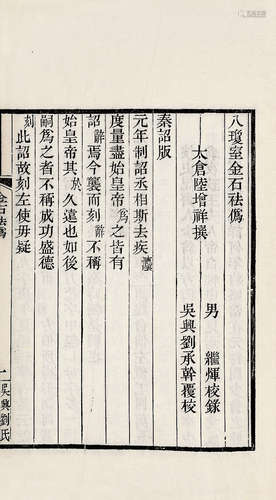 八瓊室金石祛僞
太倉陸增祥撰
男 繼煇校錄
吳興劉承幹覆校
秦詔版
元年制詔丞相斯去疾灋
度量盡始皇帝爲之皆有
詔辭焉今襲而刻辭不稱
始皇帝其於久遠也如後
嗣爲之者不稱成功盛德
刻此詔故刻左使毋疑
金石祛僞
一
吳興劉氏